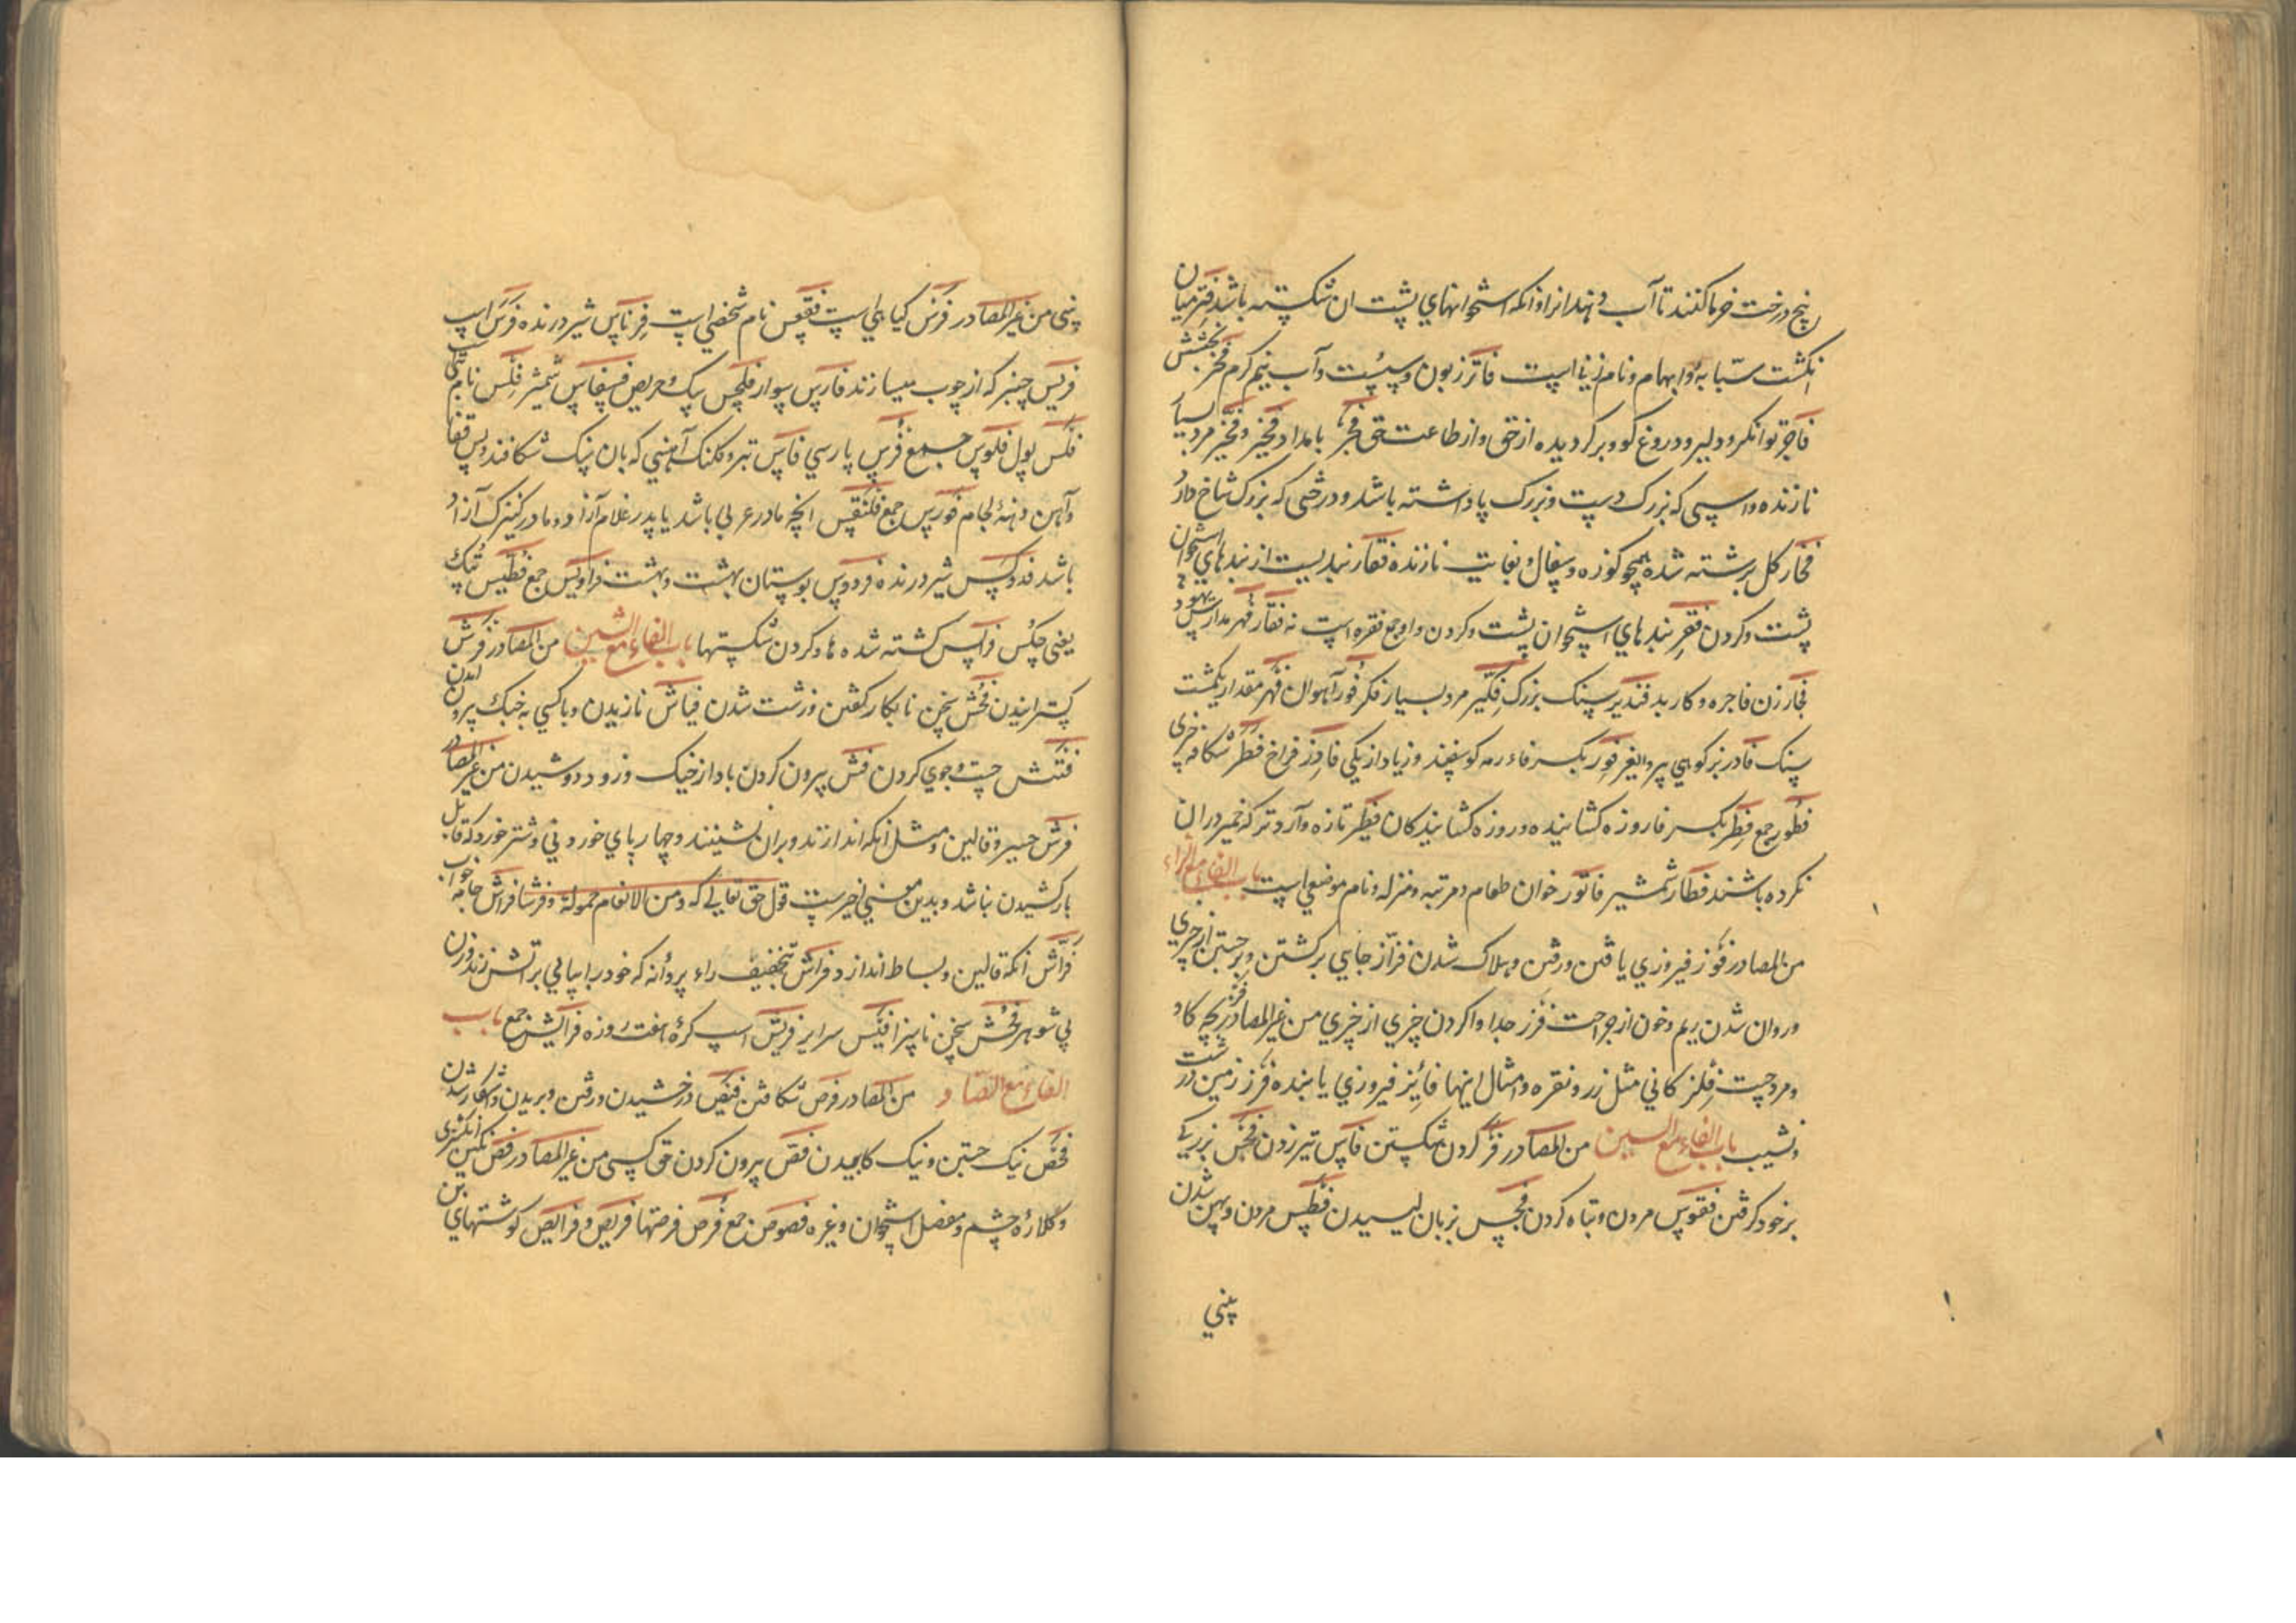 بیخ درخت خرما کنند تا آب دهند انرا و انکه استخوانهای پشت ان شکسته باشد فتر میان
انکشت سبابه و ابهام و نام زنیا است فاتر زبون و سست و آب نیم کرم فجر بخشش
فاجر توانکر و دلیر و دروغ کو و برکردیده از حق و از طاعت حق فجر بامداد فخیر و فخیر مرد بسیار
نازنده و اسپی که بزرک دست و بزرک پا داشته باشد و درختی که بزرک شاخ دارد
فخار کل برشته شده همچو کوزه و سفال و بغایت نازنده فقار بندیست از بندهای استخوان
پشت و کردن فقر بندهای استخوان پشت و کردن و او جمع فقره است نه فقار فهر مدارس یهود
فجار زن فاجره و کار بد فندیر سنک بزرک فکیر مرد بسیار فکر فور آهوان فهر مقدار یکمشت
سنک فادر بز کوهی پیر و الیغر فور بکسر فاء رمه کوسفند و زیاد از یکی فادر فراخ فطر شکاف چیزی
فطور جمع فطر بکسر فا روزه کشاینده و روزه کشایندکان فطیر تازه و آرد تر که خمیر در ان
نکرده باشند فطار شمشیر فاتور خوان طعام و مرتبه و منزله و نام موضعی است باب الفاء مع الزاء
من المصادر فوز فیروزی یافتن و رفتن و هلاک شدن فزاز جای برکشتن و برجستن از چیزی
و روان شدن ریم و خون از جراحت فرز جدا وا کردن چیزی از چیزی من غیر المصادر فز بچه کاو
و مرد چست فلز کانی مثل زر و نقره و امثال اینها فائز فیروزی یابنده فرز زمین درشت
و نشیب باب الفاء مع السین من المصادر فرس کردن شکستن فاس تبر زدن فجس بزرکی
بر خود کرفتن فقوس مردن و تباه کردن فجس بزبان لیسیدن فطس مردن و پهن شدن
بینی
بینی من غیر المصادر فرس کیاهی است فقعس نام شخصی است فرناس شیر درنده فرس اسب
فریس چنبر که از چوب میسازند فارس سوار فلحس سک و حریص فسفاس شمشیر فلس نام بتی
فلس پول فلوس جمع فرس پارسی فاس تبر و کلنک آهنی که بان سنک شکافند و پس قفا
و آهن دهنه لجام فورس جمع فلنقس انچه مادر عربی باشد یا پدر غلام آزاد و مادر کنیزک آزاد
باشد فدوکس شیر درنده فردوس بوستان بهشت و بهشت فرادیس جمع فطیس پتک
یعنی چکس فرایس کشته شده ها و کردن شکستها باب الفاء مع الشین من المصادر فرش
کسترانیدن فحش سخن نابکار کفتن و زشت شدن فیاش نازیدن و با کسی به خبک بیرون امدن
فتش جست و جوی کردن فش بیرون کردن باد از خیک و زود دوشیدن من غیر المصادر
فرش حصیر و قالین و مثل انکه اندازند و بران نشینند و چهار پای خوردنی و شتر خورد که قابل
بار کشیدن نباشد و بدین معنی اخیرست قول حق تعالی که و من الانعام حمولة و فرشا فراش جامه خواب
فراش انکه قالین و بساط اندازد فراش بتخفیف راء پروانه که خود را بیابی بر اتش زند و زن
بی شوهر فحش سخن ناسزا فنیس سرایز فریش اسب کره هفت روزه فرایش جمع باب
الفاء مع الصاد من المصادر فرص شکافتن فنیص درخشیدن و رفتن و بریدن و اشکار شدن
فحص نیک جستن و نیک کاویدن فقص بیرون کردن حق کسی من غیر المصادر فص نکین انکشتری
و کلاره چشم و مفصل استخوان و غیره فصوص جمع فرص فرصتها فریص و فرایص کوشتهای بن